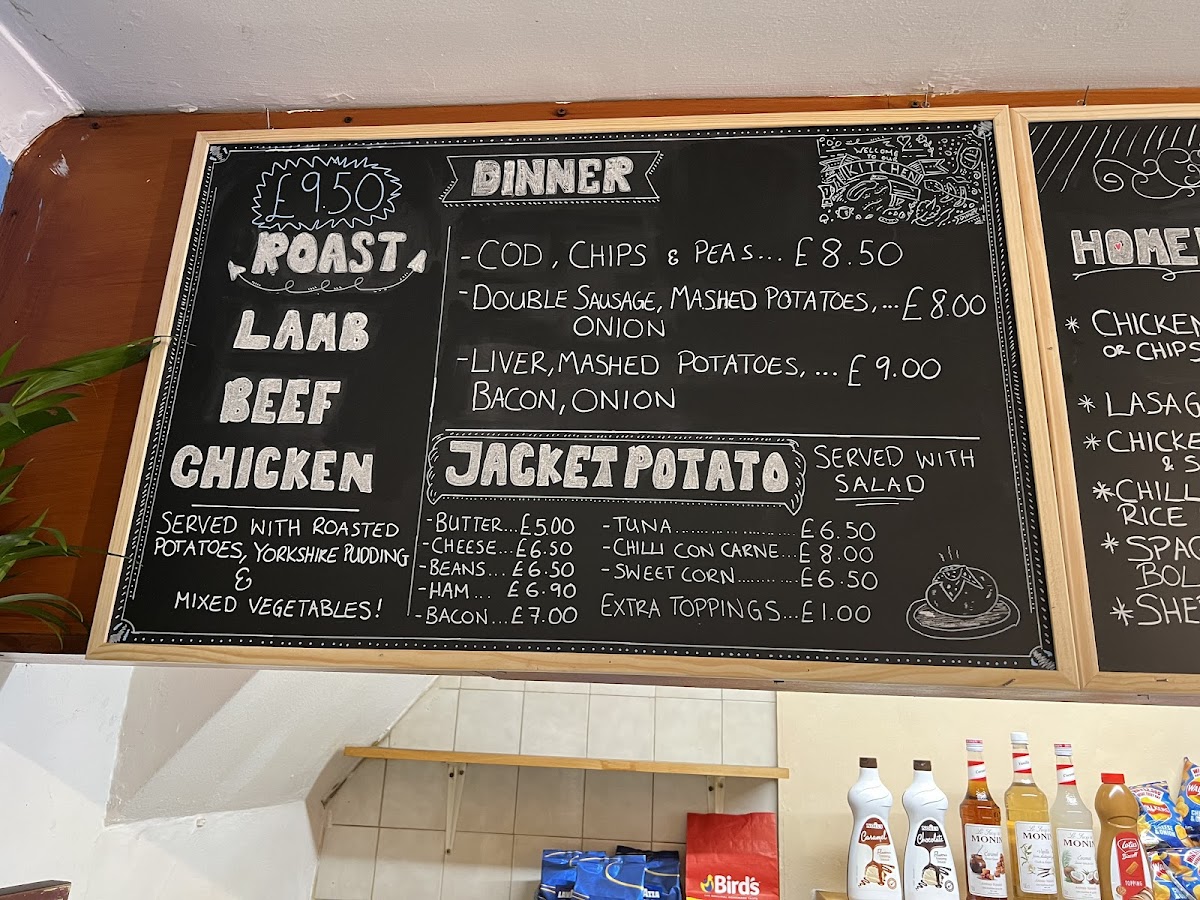 £9.50
ROAST
LAMB
BEEF
CHICKEN
SERVED WITH ROASTED
POTATOES, YORKSHIRE PUDDING
&
MIXED VEGETABLES!
DINNER
WELCOME
TO OUR
KITCHEN
- COD, CHIPS & PEAS... £8.50
- DOUBLE SAUSAGE, MASHED POTATOES,... £8.00
ONION
- LIVER, MASHED POTATOES, ... £9.00
BACON, ONION
JACKET POTATO
SERVED WITH
SALAD
- BUTTER... £5.00
- CHEESE... £6.50
- BEANS.... £6.50
- HAM.... £6.90
- BACON... £7.00
- TUNA................. £6.50
- CHILLI CON CARNE... £8.00
- SWEET CORN.......... £6.50
EXTRA TOPPINGS... £1.00
HOME
* CHICKEN
OR CHIPS
* LASAG
* CHICKE
& S
* CHILL
RICE
* SPAG
BOL
* SHE
Bird's
Caramel
Chocolate
MONIN
MONIN
MONIN
Lotus
Biscoff
TOPPING
WALKERS
CHEESE & ONION